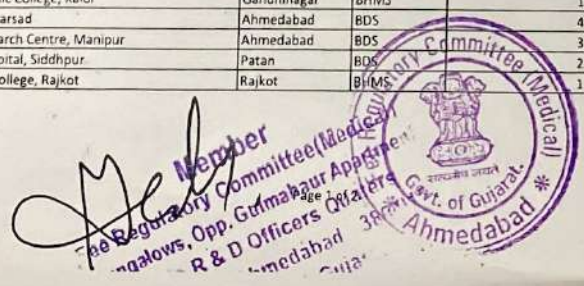 Gandhinagar BHMS 1
arsad Ahmedabad BDS 4
arch Centre, Manipur Ahmedabad BDS 3
pital, Siddhpur Patan BDS 2
ollege, Rajkot Rajkot BHMS 1
Member
ee Regulatory Committee(Medical)
ngalows, Opp. Gulmahaur Apartment
R & D Officers Quarters
hmedabad 38
Guja
Page 1 of 2
Regulatory Committee (Medical)
सत्यमेव जयते
Govt. of Gujarat.
* Ahmedabad *